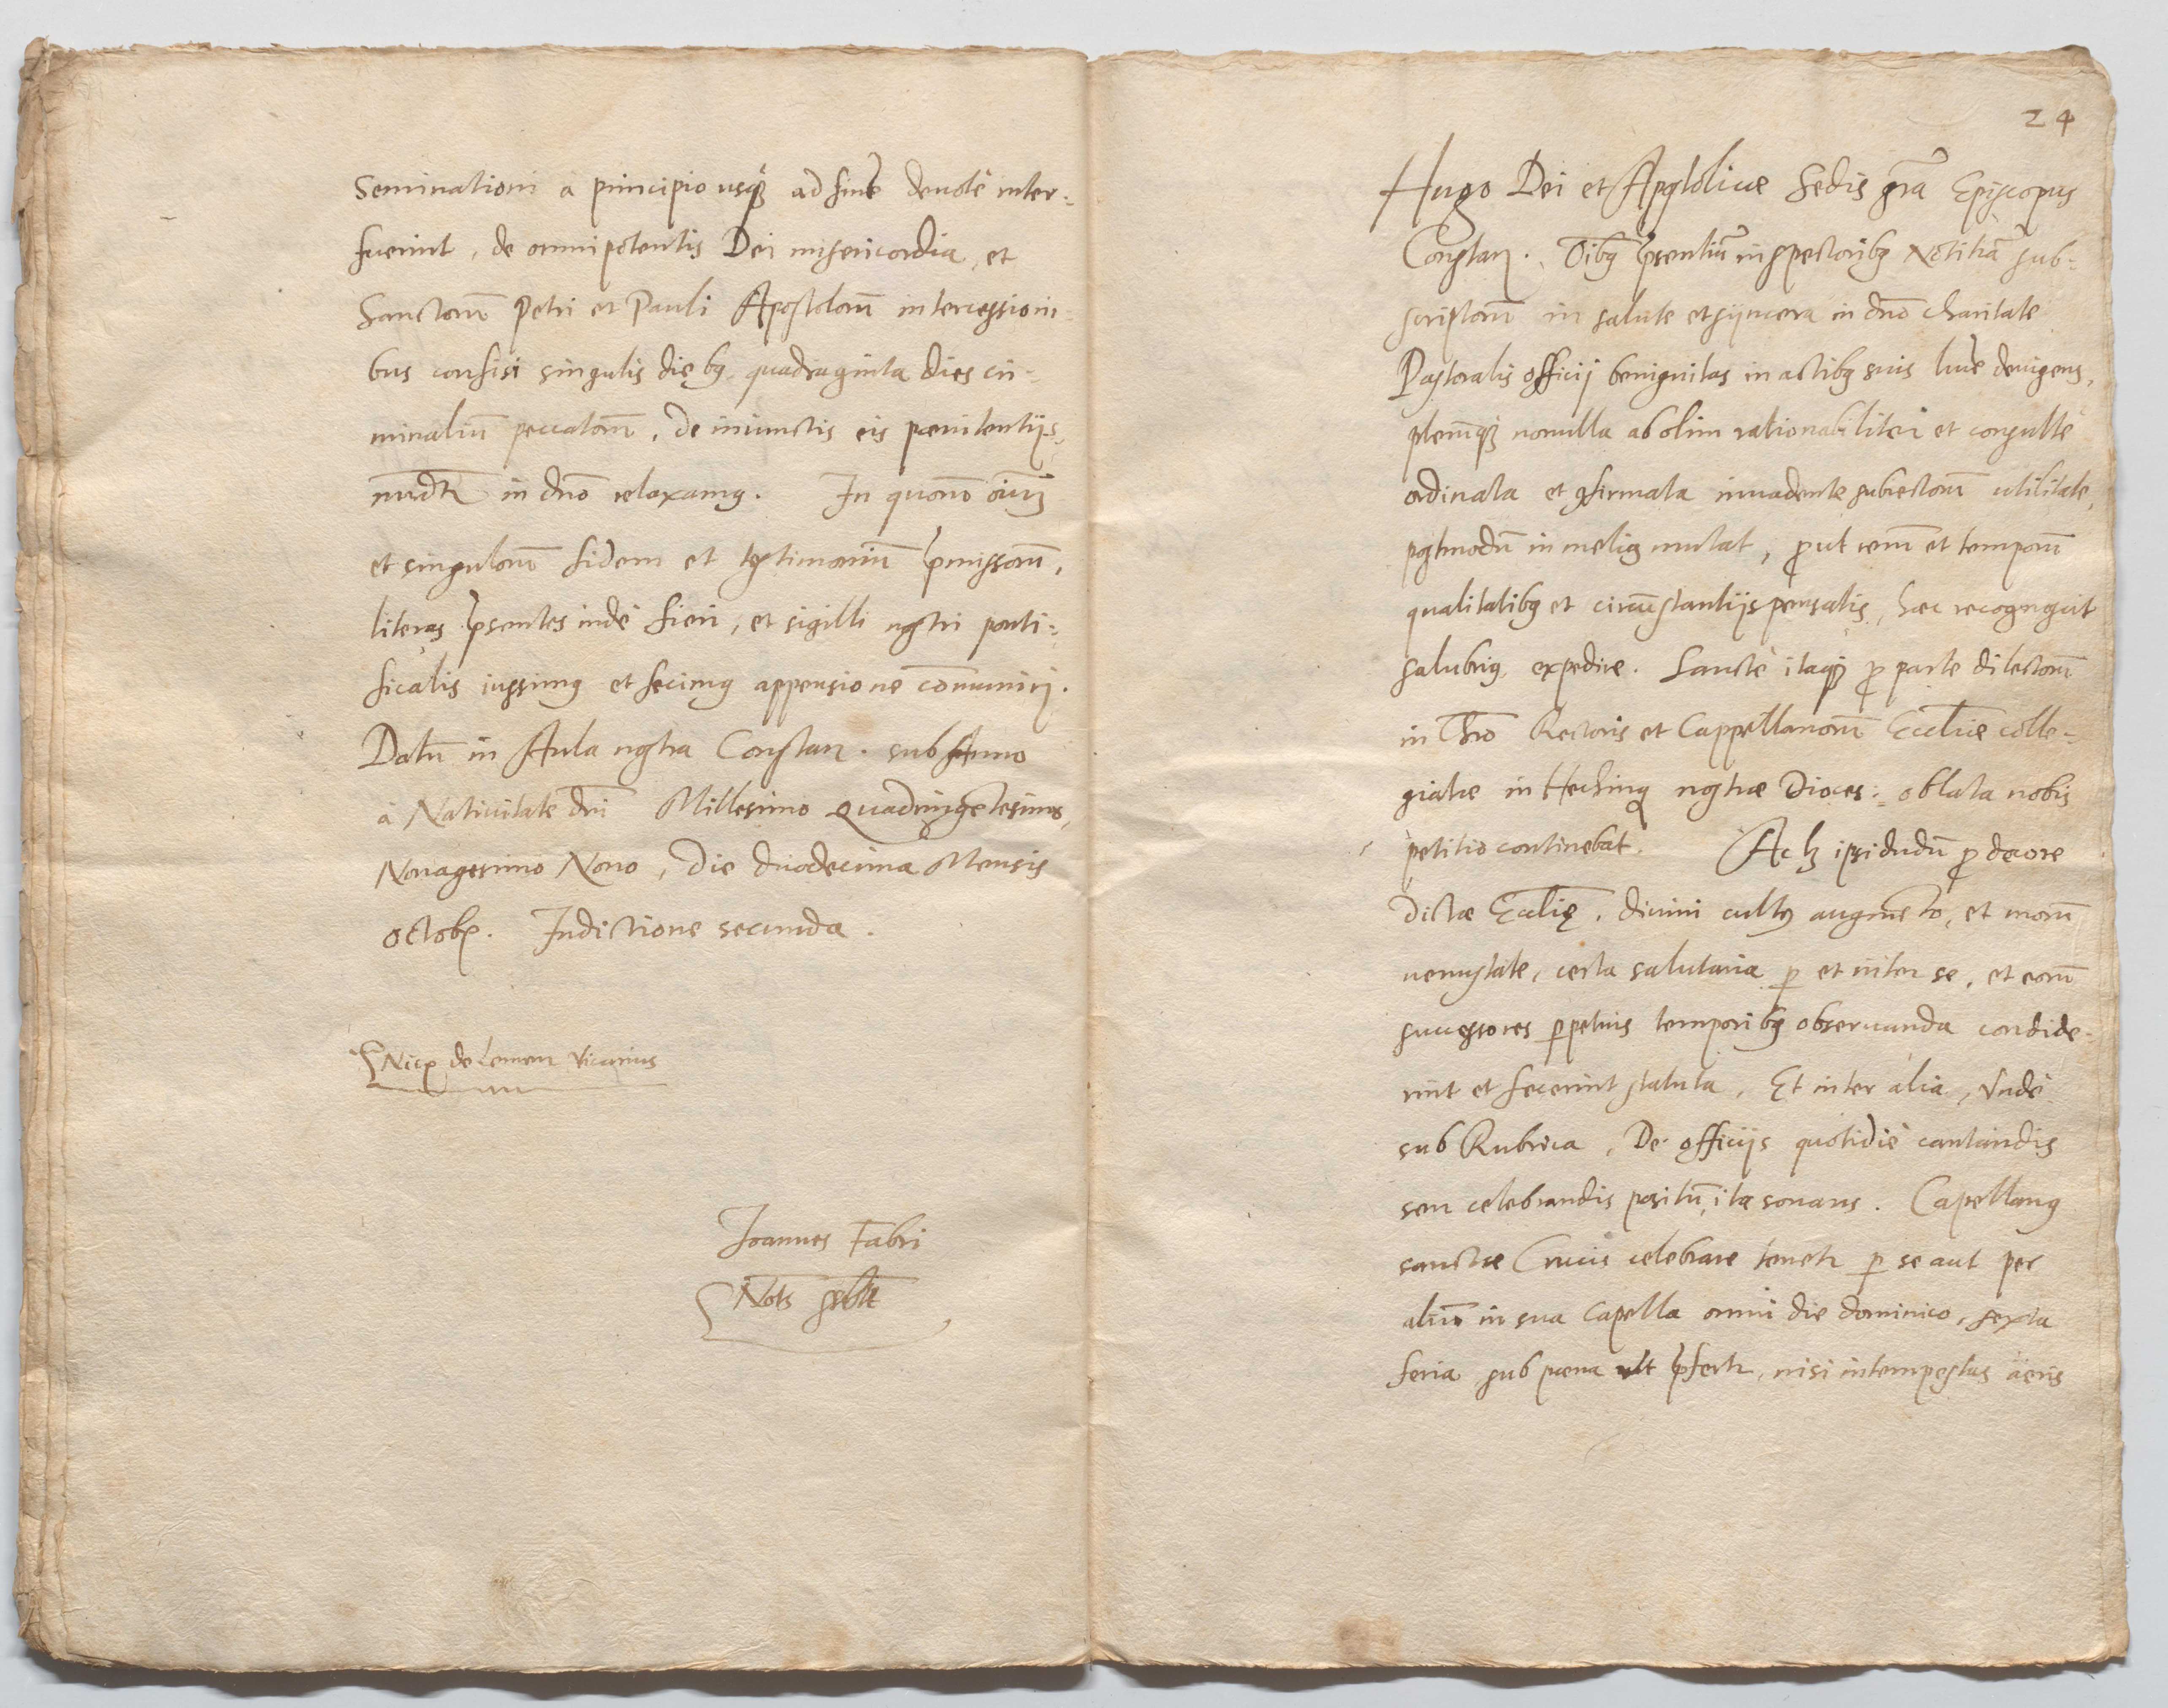 seminationi a principio usq₃ ad finē deuotè inter-
fuerint, de omnipotentis Dei misericordia, et
Sanctorū Petri et Pauli Apostolorū intercessioni-
bus confisi singulis diebꝰ quadraginta dies cri-
minaliū peccatorū, de iniunctis eis poenitentijs,
in dn̄o relaxamꝰ. In quorō oīum
et singulorū fidem et testimoniū p̄missorū,
literas p̄sentes indè fieri, et sigilli nostri ponti-
ficalis iussimꝰ et fecimꝰ appensione com̄uniri.
Datū in Aula nostra Constan. sub Anno
à Natiuitate dn̄i Millesimo Quadringētesimo,
Nonagesimo Nono, Die duodecima Mensis
Octobr. Indictione secunda.
Nic de Lemen Vicarius
Joannes Fabri
Nots sc̄bsit
24
Hugo Dei et Apostolicae Sedis gr̄a Episcopus
Constan. Oībꝰ p̄sentiū inspectoribꝰ Notitiā sub-
scriptorū in salute et syncera in dn̄o charitate
Pastoralis officij benignitas in actibꝰ suis
plerūq₃ nonulla ab olim rationabiliter et consultè
ordinata et ꝯfirmata inuadente subiectorū utilitate,
postmodū in meliꝰ mutat, ꝓut rerū et temporū
qualitatibꝰ et circūstantijs pensatis, haec recognoscit
salubriꝰ expedire. Sanctè itaq₃ ꝓ parte dilectorū
in Chr̄o Rectoris et Cappellanorū Eccl̄iae colle-
giatae in Heching nostrae Dioces: oblata nobis
petitio continebat. Ac ipsi dudū ꝓ decore
dictae Eccl̄ię, diuini cultꝰ augmēto, et morū
uenustate, certa salutaria ꝑ et inter se, et eorū
successores ꝑpetuis temporibꝰ obseruanda condide-
rint et fecerint statuta, Et inter alia, Vnde
sub Rubrica, De officijs quotidiè cantandis
seu celebrandis positū, ita sonans. Capellanꝰ
sanctae Crucis celebrare tenetr ꝑ se aut per
aliū in sua Capella omni die dominico, sexta
feria sub poena ut p̄fertr, nisi intempestas aëris